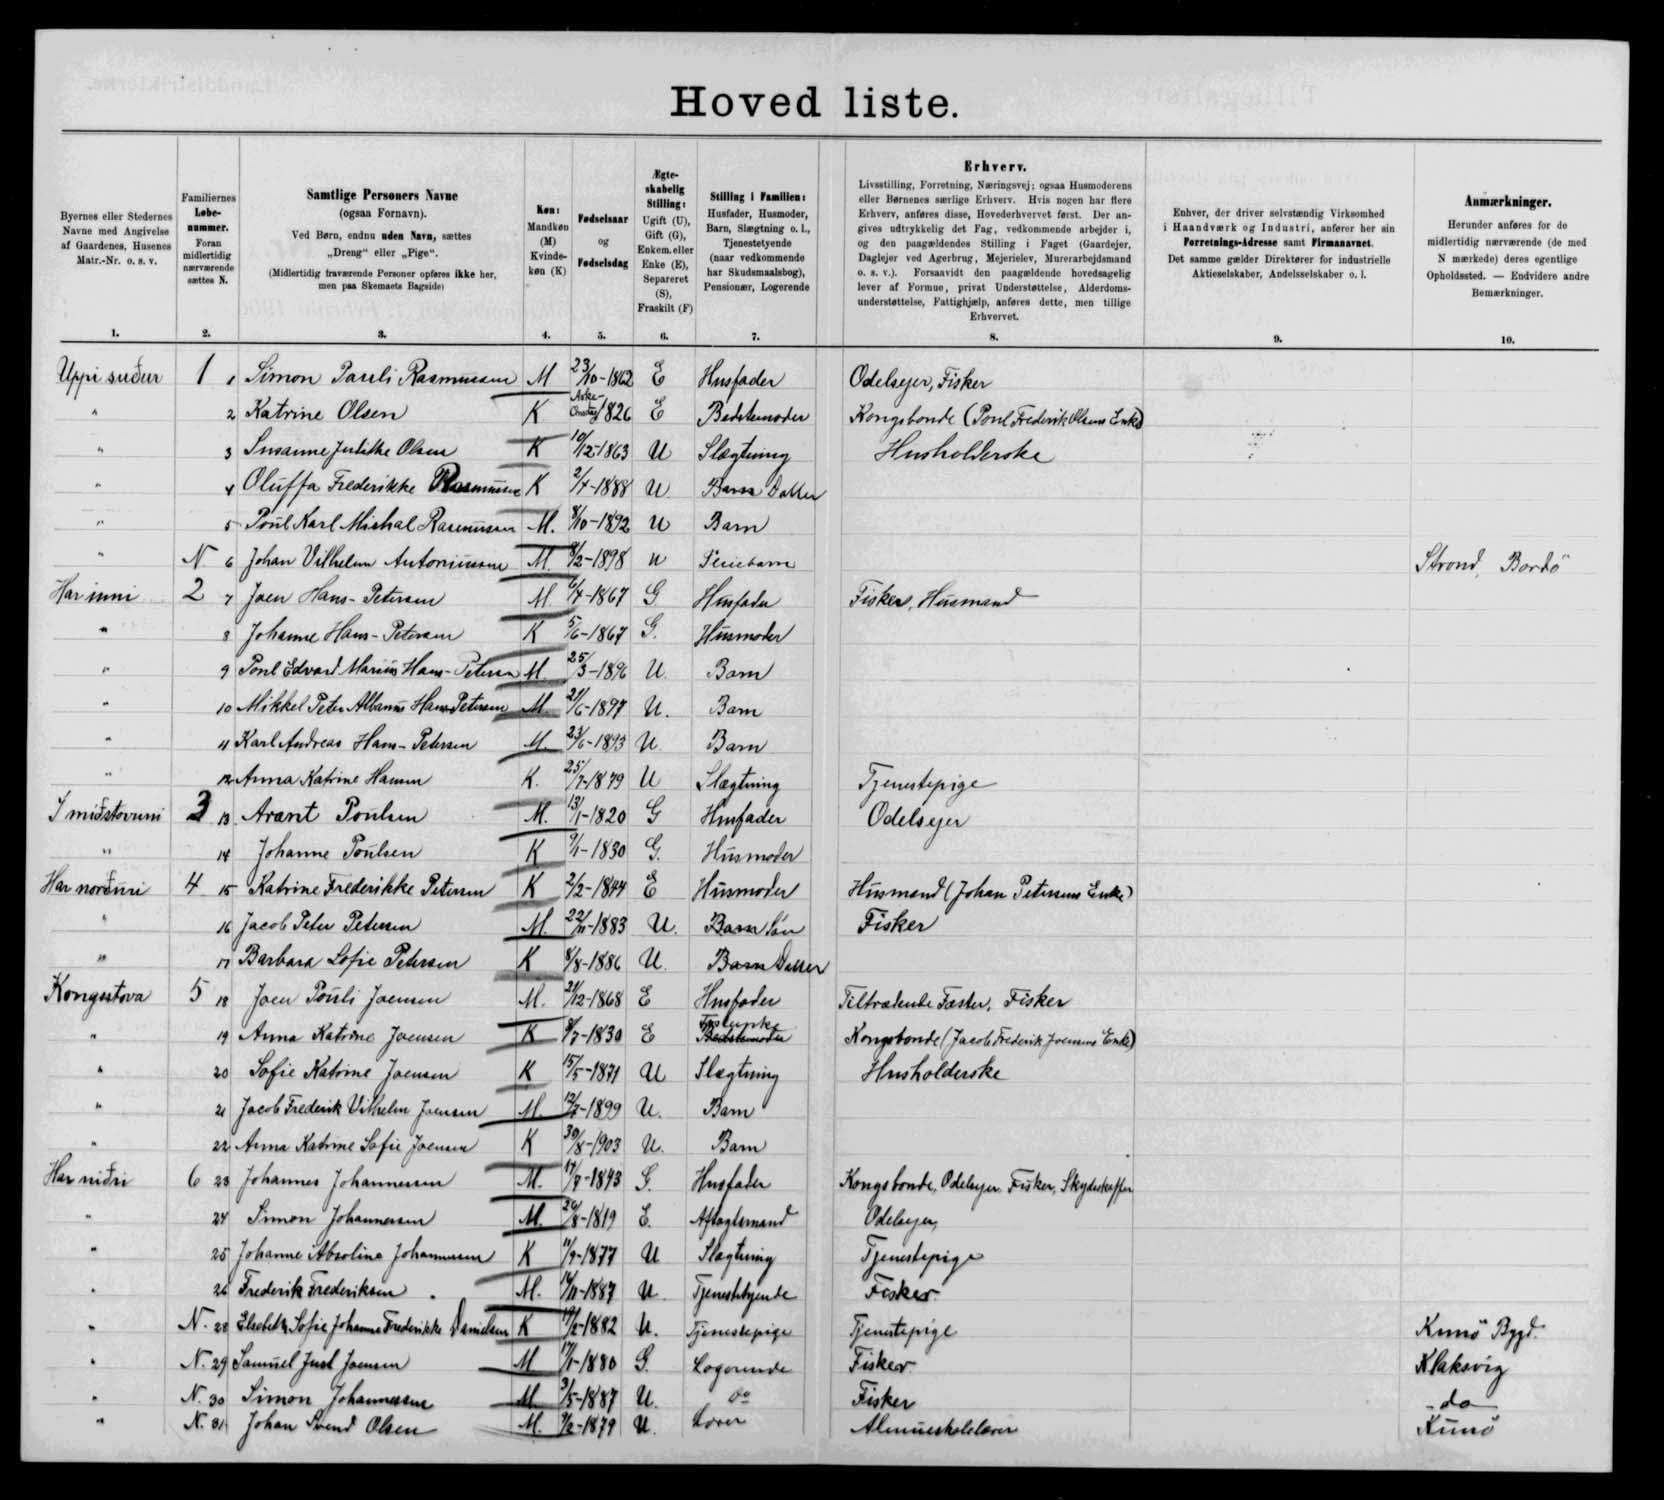 Hoved liste.
Byernes eller Stedernes
Navne med Angivelse
af Gaardenes, Husenes
Matr.-Nr. o. s. v.
1.
Familiernes
Løbe-
nummer.
Foran
midlertidig
nærværende
sættes N.
2.
Samtlige Personers Navne
(ogsaa Fornavn).
Ved Børn, endnu uden Navn, sættes
„Dreng“ eller „Pige“.
(Midlertidig fraværende Personer opføres ikke her,
men paa Skemaets Bagside)
3.
Køn:
Mandkøn
(M)
Kvinde-
køn (K)
4.
Fødselsaar
og
Fødselsdag
5.
Ægte-
skabelig
Stilling:
Ugift (U),
Gift (G),
Enkem. eller
Enke (E),
Separeret
(S),
Fraskilt (F)
6.
Stilling i Familien:
Husfader, Husmoder,
Barn, Slægtning o. l.,
Tjenestetyende
(naar vedkommende
har Skudsmaalsbog),
Pensionær, Logerende
7.
Erhverv.
Livsstilling, Forretning, Næringsvej; ogsaa Husmoderens
eller Børnenes særlige Erhverv. Hvis nogen har flere
Erhverv, anføres disse, Hovederhvervet først. Der an-
gives udtrykkelig det Fag, vedkommende arbejder i,
og den paagældendes Stilling i Faget (Gaardejer,
Daglejer ved Agerbrug, Mejerielev, Murerarbejdsmand
o. s. v.). Forsaavidt den paagældende hovedsagelig
lever af Formue, privat Understøttelse, Alderdoms-
understøttelse, Fattighjælp, anføres dette, men tillige
Erhvervet.
8.
Enhver, der driver selvstændig Virksomhed
i Haandværk og Industri, anfører her sin
Forretnings-Adresse samt Firmanavnet.
Det samme gælder Direktører for industrielle
Aktieselskaber, Andelsselskaber o. l.
9.
Anmærkninger.
Herunder anføres for de
midlertidig nærværende (de med
N mærkede) deres egentlige
Opholdssted. — Endvidere andre
Bemærkninger.
10.
Uppi suður 1 1 Simon Pauli Rasmussen M 23/10-1862 E Husfader Odelsejer, Fisker
" 2 Katrine Olsen K Aske Onsdag 1826 E Bedstemoder Kongsbonde (Poul Frederik Olsens Enke)
" 3 Susanne Julikke Olsen K 10/12-1863 U Slægtning Husholderske
" 4 Oluffa Frederikke Rasmussen K 2/4-1888 U Barn Datter
" 5 Poul Karl Mishal Rasmussen M. 8/10-1892 U Barn
" N 6 Johan Vilhelm Antoniussen M. 9/2-1898 U Strond, Bordö
Har inni 2 7 Joen Hans-Petersen M. 6/4-1867 G Husfader Fisker, Husmand
" 8 Johanne Hans-Petersen K 5/6-1867 G. Husmoder
" 9 Poul Edvard Marius Hans-Petersen M. 25/3-1896 U. Barn
" 10 Mikkel Peter Albanus Hans-Petersen M. 21/6-1897 U. Barn
" 11 Karl Andreas Hans-Petersen M. 23/6-1893 U. Barn
" 12 Anna Katrine Hansen K. 25/7-1879 U Slægtning Tjenestepige
I miðstovuni 3 13 Arant Poulsen M. 13/1-1820 G Husfader Odelsejer
" 14 Johanne Poulsen K 9/1-1830 G. Husmoder
Har norðuri 4 15 Katrine Frederikke Petersen K 2/2-1844 E Husmoder Husmand (Johan Petersens Enke)
" 16 Jacob Peter Petersen M. 22/11-1883 U. Barn Søn Fisker
" 17 Barbara Sofie Petersen K 8/8-1886 U. Barn Datter
Kongsstova 5 18 Joen Pouli Joensen M. 21/12-1868 E Husfader Tiltrædende Fæster, Fisker
" 19 Anna Katrine Joensen K 8/7-1830 E Bedstemoder Kongsbonde (Jacob Frederik Joensens Enke)
" 20 Sofie Katrine Joensen K 15/5-1871 U Slægtning Husholderske
" 21 Jacob Frederik Vilhelm Joensen M. 12/7-1899 U. Barn
" 22 Anna Katrine Sofie Joensen K 30/8-1903 U. Barn
Har niðri 6 23 Johannes Johannessen M. 17/7-1843 G. Husfader Kongsbonde, Odelsejer, Fisker, Skydsskaffer
" 24 Simon Johannessen M. 26/8-1819 E. Aftægtsmand Odelsejer,
" 25 Johanne Absolina Johannessen K 11/9-1877 U Slægtning Tjenestepige
" 26 Frederik Frederiksen M. 14/11-1887 U. Tjenestetyende Fisker.
" N. 28 Elsebeth Sofie Johanne Frederikke Danielsen K 19/2-1882 U. Tjenestepige Tjenestepige Kunö Bygd.
" N. 29 Samuel Just Joensen M 17/1-1880 G. Logerende Fisker. Klaksvig
" N. 30 Simon Johannessen M. 3/5-1887 U. do Fisker - do
" N. 31 Johan Svend Olsen M. 9/2-1879 U. Lærer Almueskolelærer Kunö